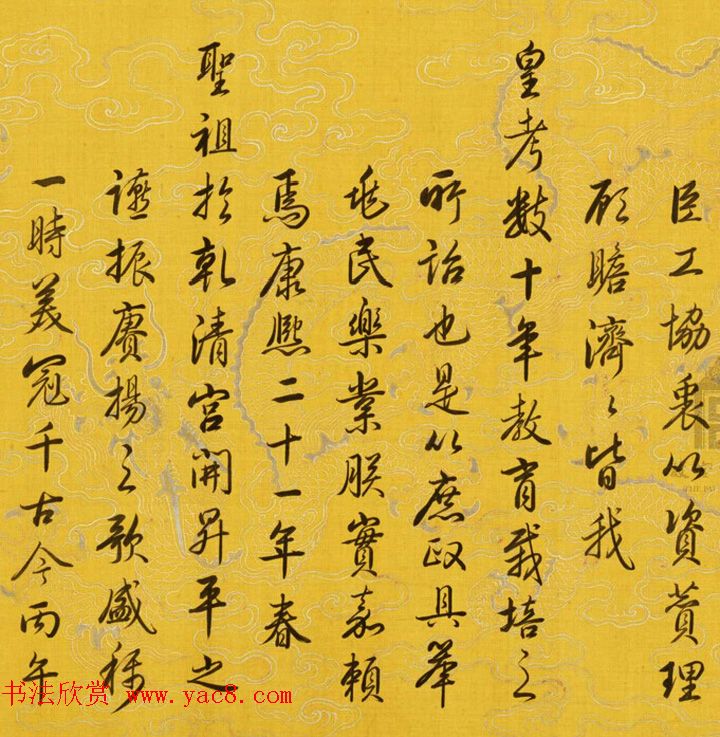 臣工協衷以資贊理
顧瞻濟〻皆我
皇考数十年教育栽培之
所詒也是以庶政具舉
兆民樂業朕實嘉賴
焉康熙二十一年春
聖祖於乾清宮開昇平之
讌振賡揚之歌盛稱
一時美冠千古今丙午
书法欣赏 www.yac8.com